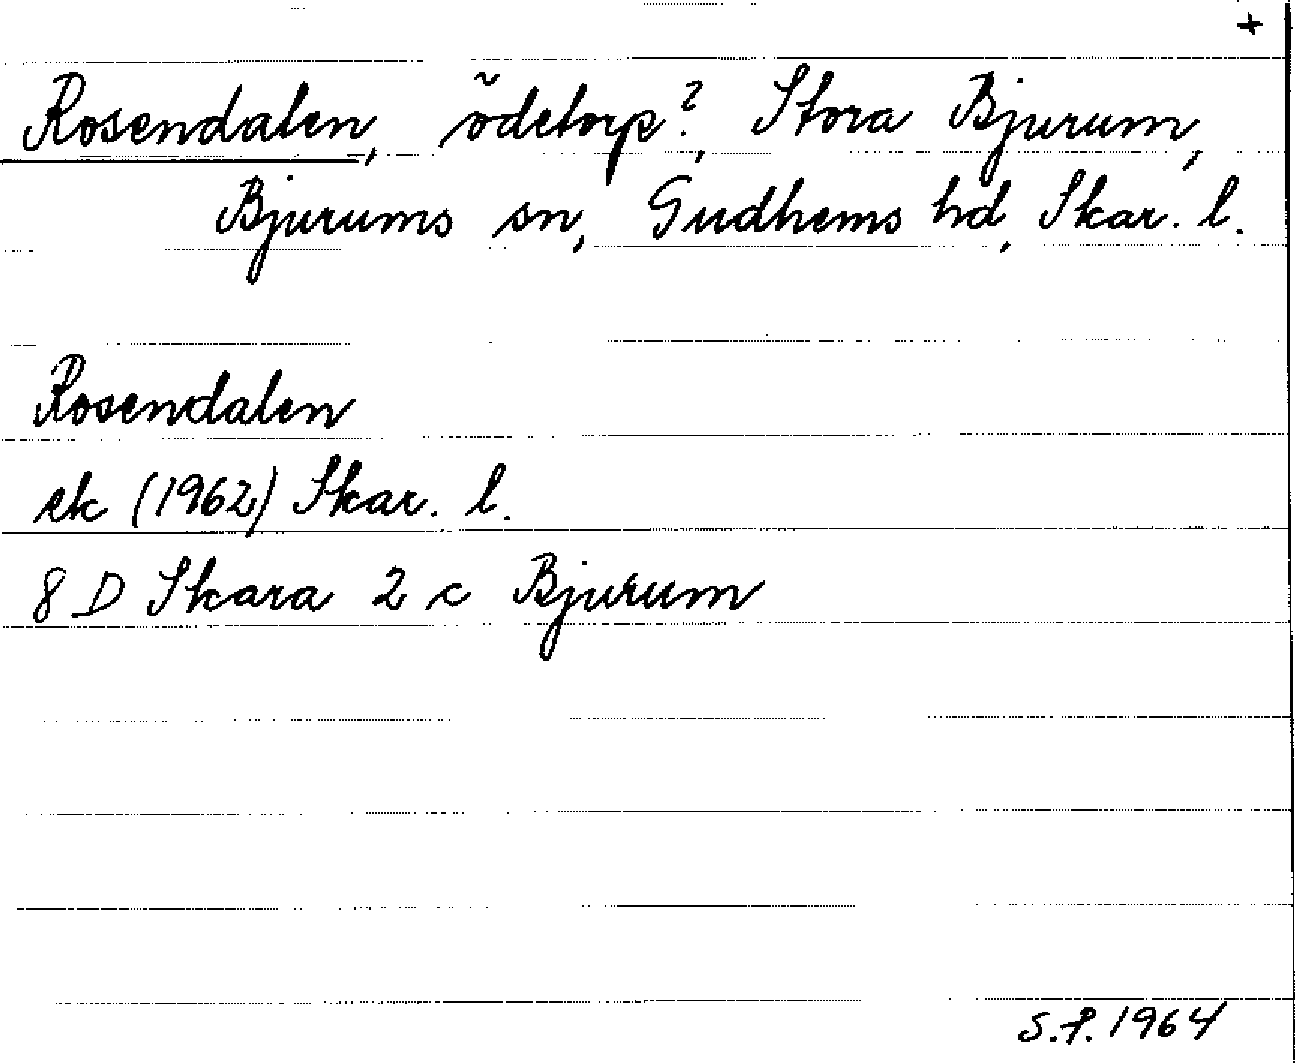 +
Rosendalen, ödetorp?, Stora Bjurum,
Bjurums sn, Gudhems hd, Skar. l.
Rosendalen
ek (1962) Skar. l.
8 D Skara 2 c Bjurum
S.P. 1964